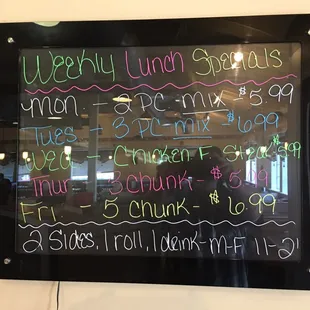 Weekly Lunch Specials
Mon. - 2 PC-mix - $5.99
Tues - 3 PC-mix - $6.99
Wed - Chicken F. Steak $5.99
Thur 3 chunk - $5.99
Fri. - 5 Chunk - $6.99
2 Sides, 1 roll, 1 drink - M-F 11-2